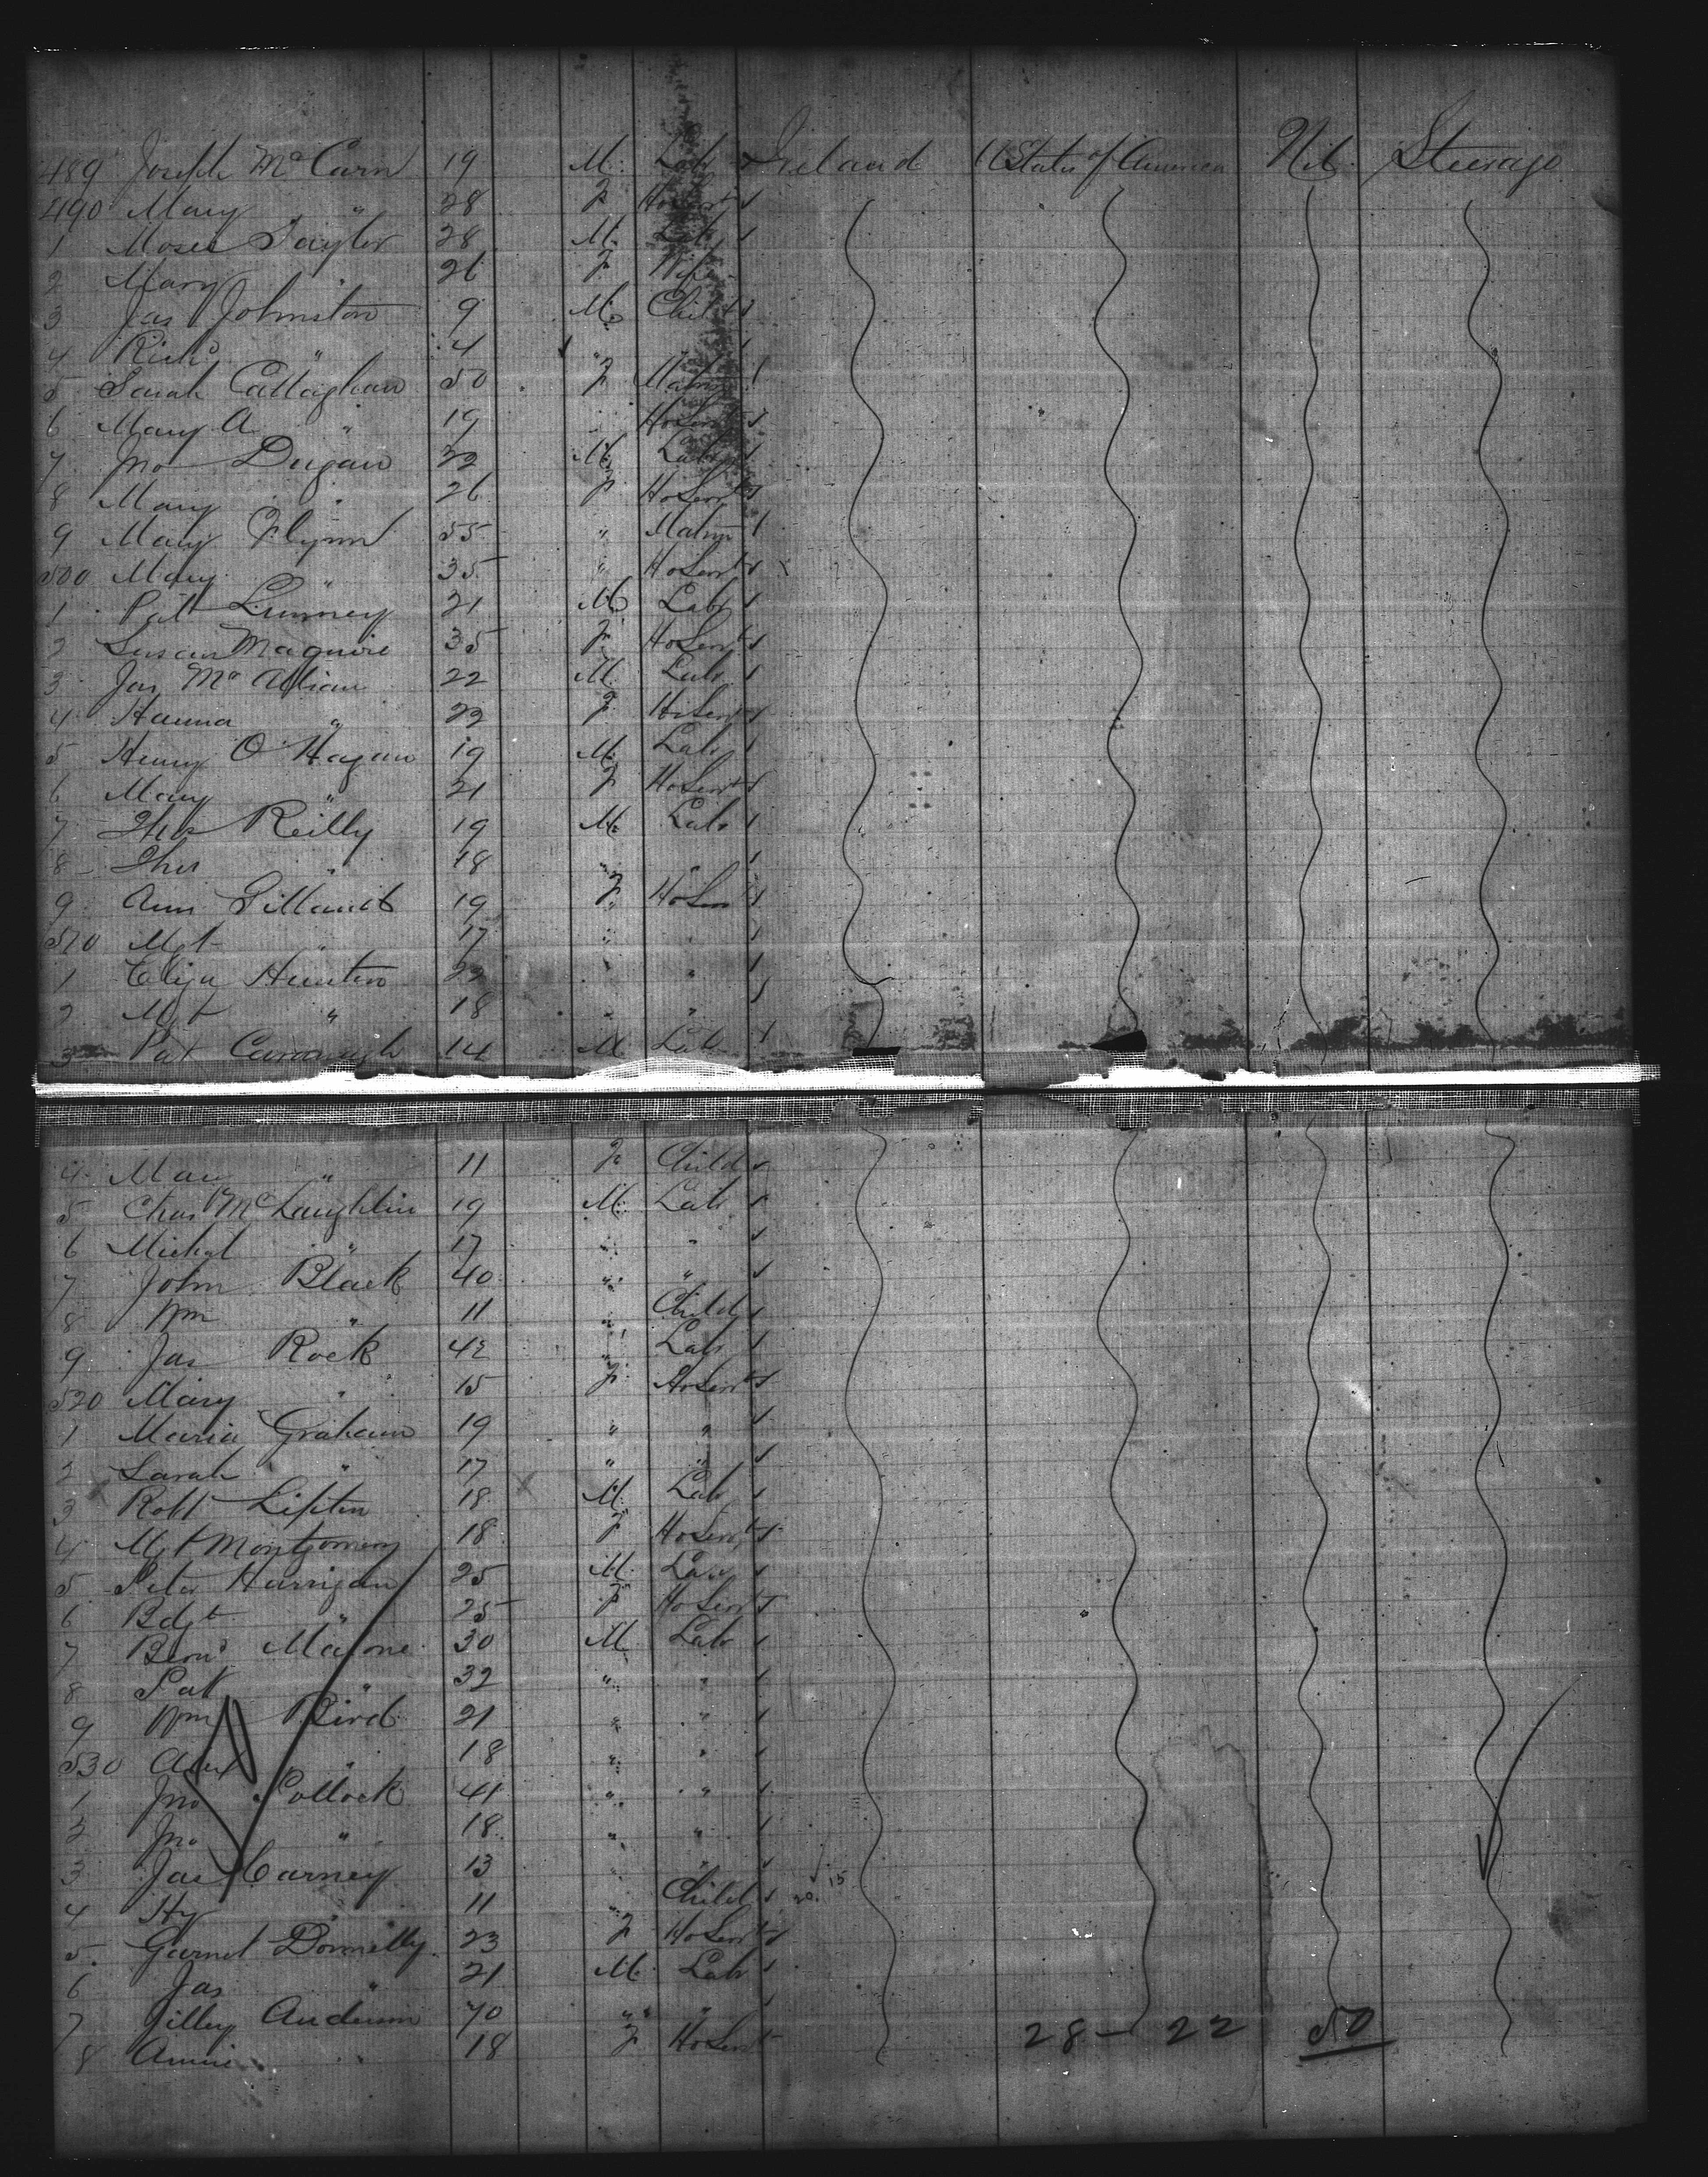 489 Joseph McCarn 19 M. Lab Ireland U States of America Nil Steerage
490 Mary " 28 F HoServt
1 Moses Taylor 28 M. Lab
2 Mary 26 F Wife
3 Jas Johnston 9 M Child
4 Richd " 4 "
5 Sarah Callaghan 50 F Matrn
6 Mary A " 19 HoServt
7 Jno Dugan 32 M. Lab
8 Mary " 26 F HoServt
9 Mary Flynn 55 " Matrn
500 Mary " 35 " HoServt
1 Pat Lunney 21 M Lab
2 Susan Maguire 35 F HoServt
3 Jas 22 M. Lab
4 Hanna " 22 F HoServt
5 Henry O'Hagan 19 M. Lab
6 Mary " 21 F HoServt
7 Thos Reilly 19 M. Lab
8 Thos " 18 " "
9 Ann 19 F HoServt
510 Mgt " 17 " "
1 Eliza Hunter 22 " "
2 Mgt " 18 " "
3 Pat Cavanagh 14 M Lab
4 Mary " 11 F Child
5 Chas McLaughlin 19 M. Lab
6 Michal " 17 " "
7 John Black 40 " "
8 Wm " 11 " Child
9 Jas Rock 42 " Lab
520 Mary " 15 F HoServt
1 Maria Graham 19 " "
2 Sarah " 17 " "
3 Robt Lipton 18 M. Lab
4 Mgt Montgomery 18 F HoServt
5 Peter Harrigan 25 M. Lab
6 Bdgt " 25 F HoServt
7 Bernd Malone 30 M Lab
8 Pat " 32 " "
9 Wm Bird 21 " "
530 Alex " 18 " "
1 Jno Pollock 41 " "
2 Jno " 18 " "
3 Jas Carney 13 " "
4 Hy " 11 " Child 20. 15
5 Garnet Donnelly 23 F HoServt
6 Jas " 21 M. Lab
7 Anderson 70 " "
8 Annie " 18 F HoServt
28 - 22 50